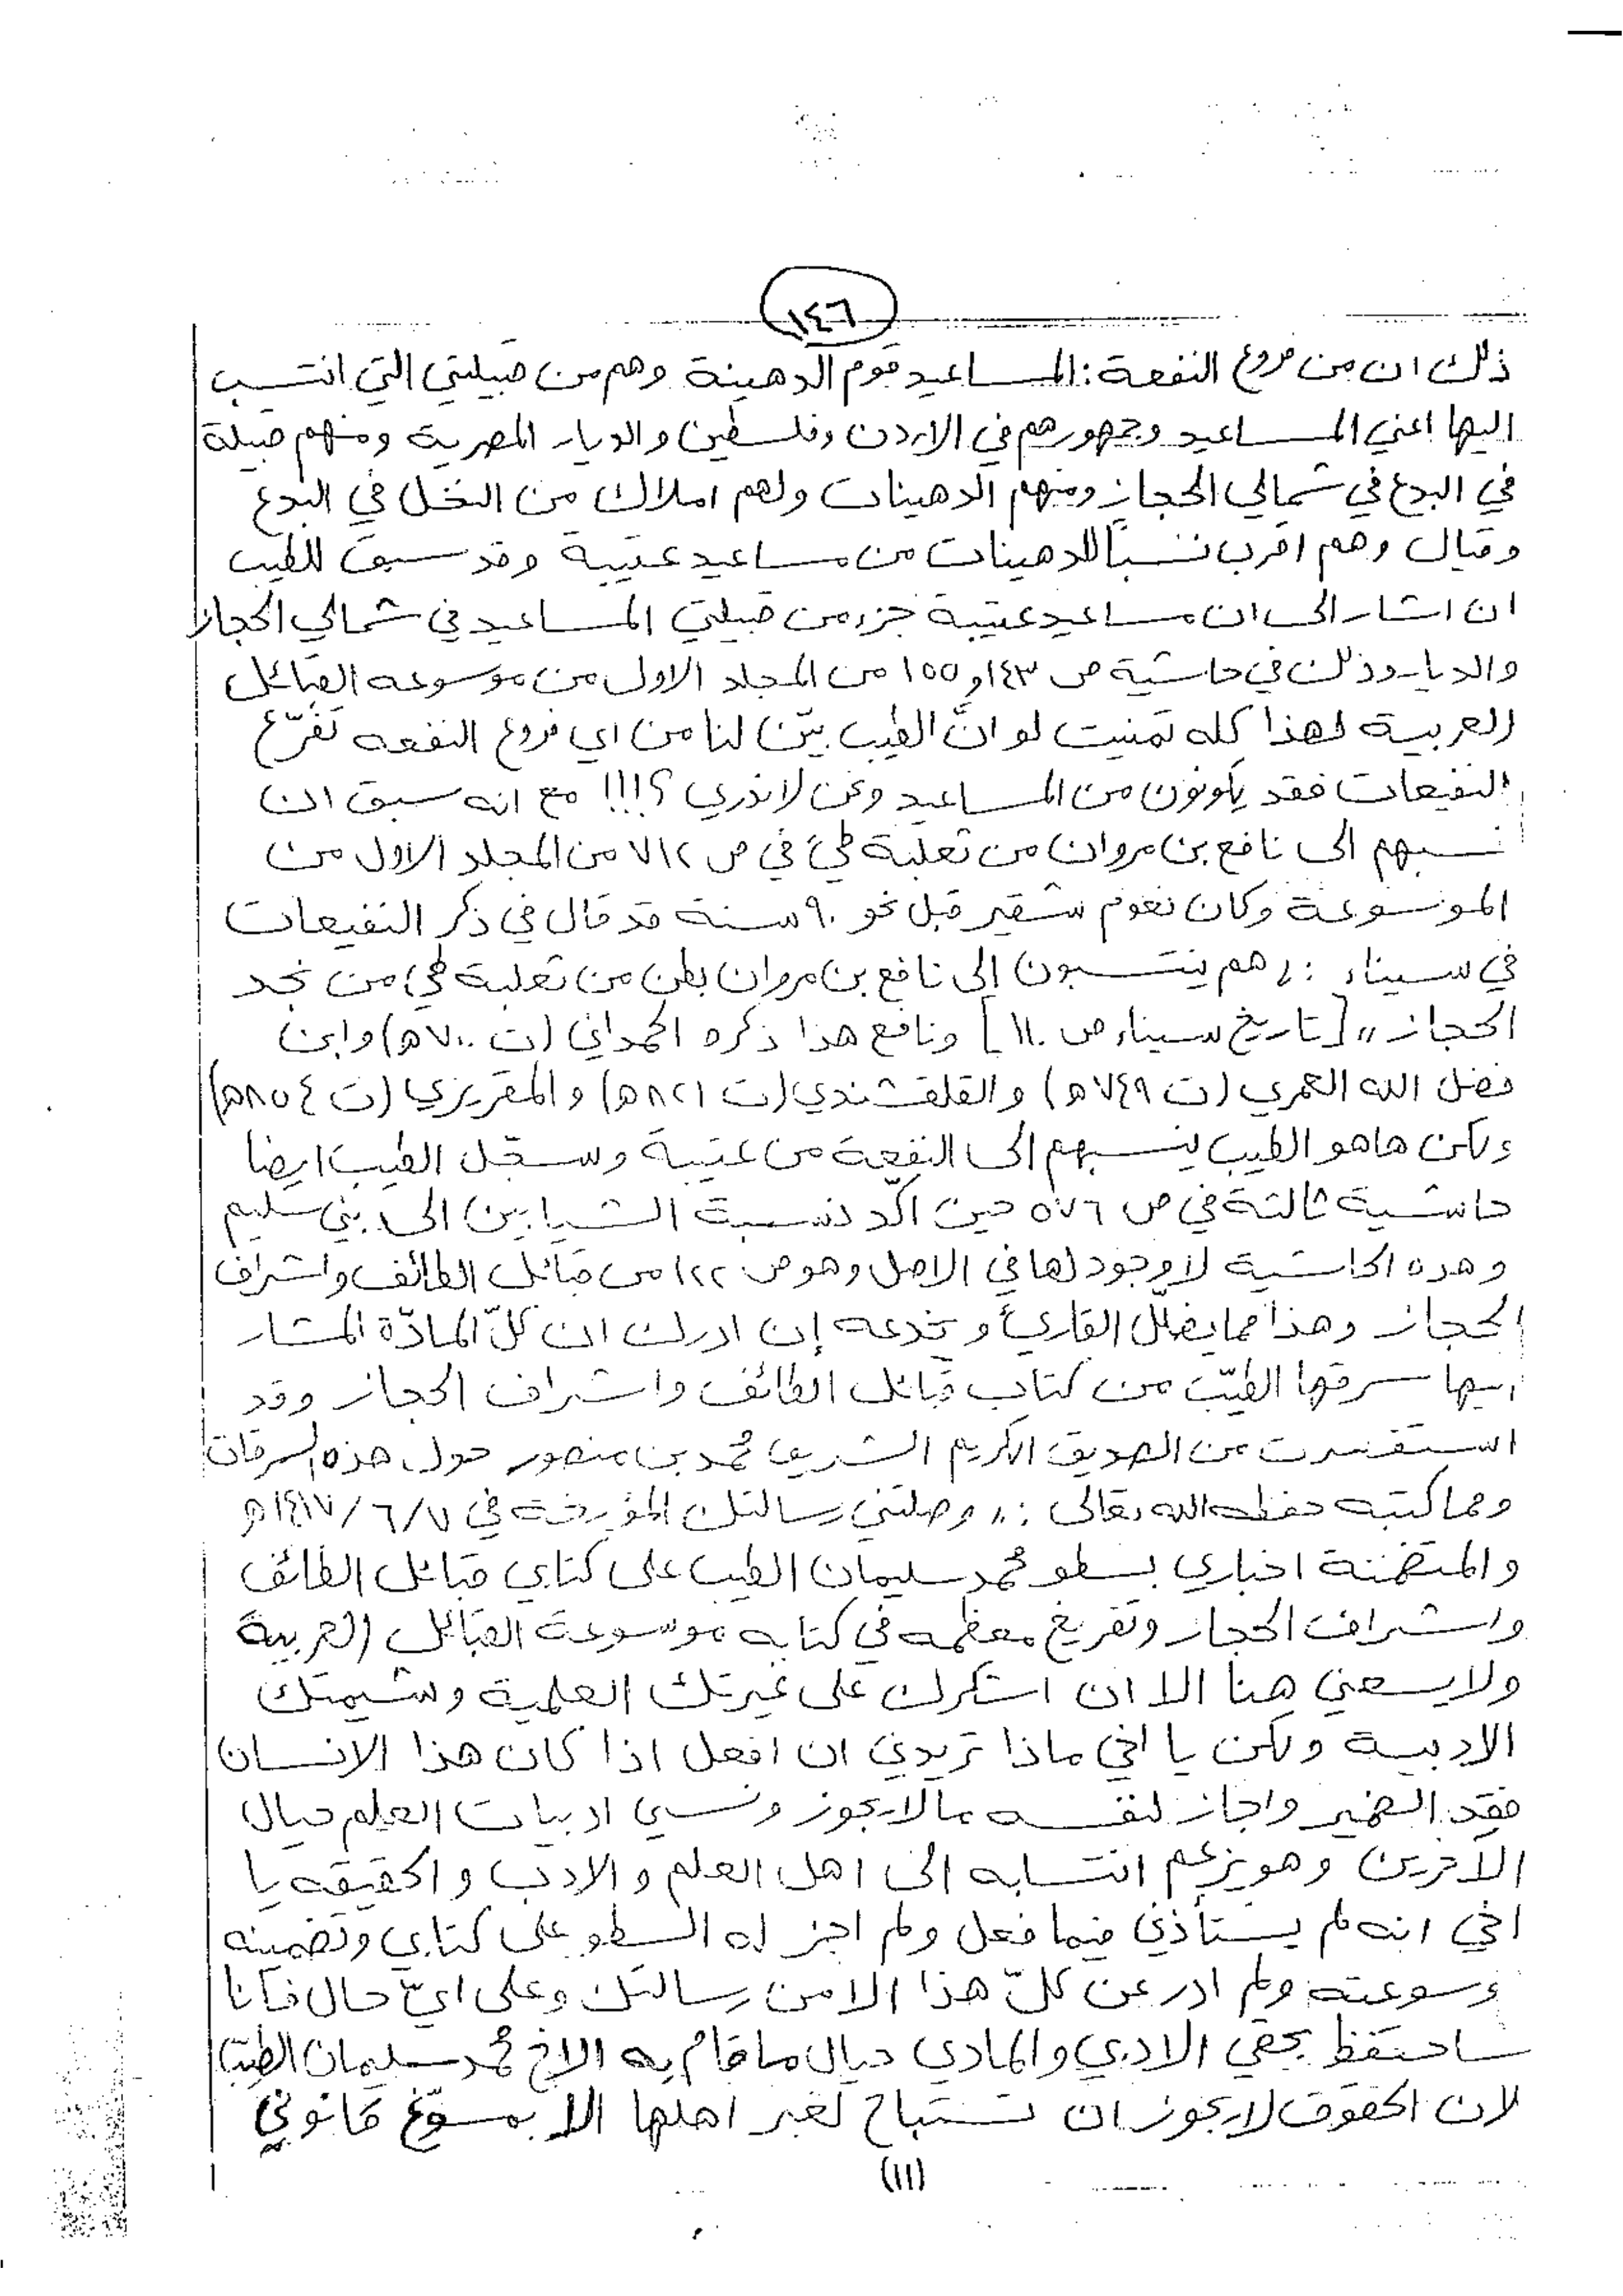 ١٤٦
ذلك ان من فروع النفعة: المساعيد قوم الدهينة وهم من قبيلتي التي انتسب
اليها اعني المساعيد وجمهورهم في الاردن وفلسطين والديار المصرية ومنهم قبيلة
في البدع في شمالي الحجاز ومنهم الدهينات ولهم املاك من النخل في البدع
وقيال وهم اقرب نسباً للدهينات من مساعيد عتيبة وقد سبق للطيب
ان اشار الى ان مساعيد عتيبة جزء من قبيلتي المساعيد في شمالي الحجاز
والديار وذلك في حاشية ص ١٤٣ و ١٥٥ من المجلد الاول من موسوعه القبائل
العربية لهذا كله تمنيت لو انّ الطيب بيّن لنا من اي فروع النفعه تفرّع
النفيعات فقد يكونون من المساعيد ونحن لا ندري ؟!!! مع انه سبق ان
نسبهم الى نافع بن مروان من ثعلبة طيّ في ص ٧١٢ من المجلد الاول من
الموسوعة وكان نعوم شقير قبل نحو ٩٠ سنة قد قال في ذكر النفيعات
في سيناء : "هم ينتسبون إلى نافع بن مروان بطن من ثعلبة طيء من نجد
الحجاز" [تاريخ سيناء ص ١١٠] ونافع هذا ذكره الحمداني (ت ٧٠٠ه) وابن
فضل الله العمري (ت ٧٤٩ ه) والقلقشندي (ت ٨٢١ه) والمقريزي (ت ٨٥٤ه)
ولكن هاهو الطيب ينسبهم الى النفعة من عتيبة وسجّل الطيب ايضا
حاشية ثالثة في ص ٥٧٦ حين اكّد نسبة الشيابين الى بني سليم
وهده الحاشية لا وجود لها في الاصل وهو ص ١٢٢ من قبائل الطائف واشراف
الحجاز وهذا مما يضلّل القاريْ ويخدعه إن ادرك ان كلّ المادّة المشار
اليها سرقها الطيّب من كتاب قبائل الطائف واشراف الحجاز وقد
استفسرت من الصديق الكريم الشريف محمد بن منصور حول هذه السرقات
ومما كتبه حفظه الله تعالى : "وصلتني رسالتك المؤرخة في ١٤١٧/٦/٧ه
والمتضمنة اخباري بسطو محمد سليمان الطيب على كتابي قبائل الطائف
واشراف الحجاز وتفريغ معظمه في كتابه موسوعة القبائل العربية
ولا يسعني هنا الا ان اشكرك على غيرتك العلمية وشيمتك
الادبية ولكن يا اخي ماذا تريدني ان افعل اذا كان هذا الانسان
فقد الضمير واجاز لنفسه مالا يجوز ونسي ادبيات العلم حيال
الآخرين وهو يزعم انتسابه الى اهل العلم والادب والحقيقه يا
اخي انه لم يستأذني فيما فعل ولم اجز له السطو على كتابي وتضمينه
وسوعته ولم ادر عن كلّ هذا الا من رسالتك وعلى ايّ حال فأنا
ساحتفظ بحقي الادبي والمادي حيال ما قام به الاخ محمد سليمان الطيّب
لان الحقوق لا يجوز ان تستباح لغير اهلها الا بمسوّغ قانوني
(١١)